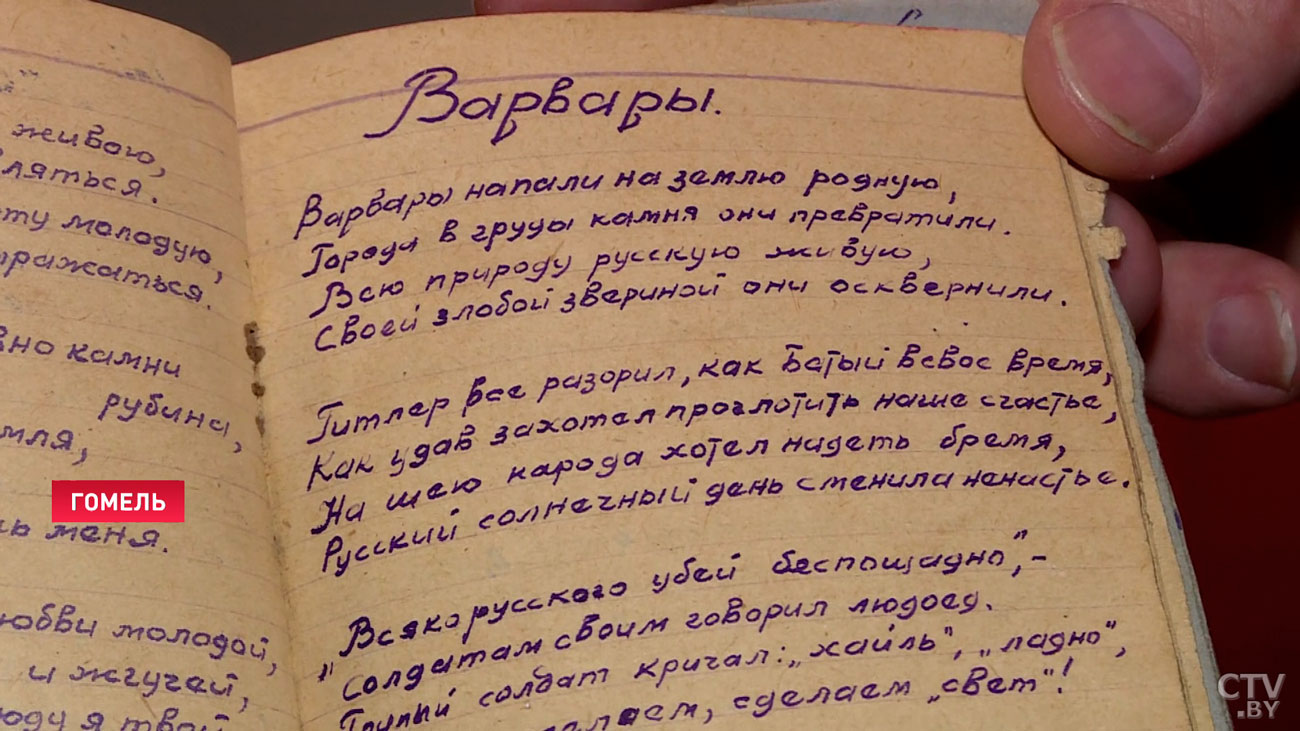 живою,
ляться.
ту молодую,
тражаться.
вно камни
рубина,
мля,
ь меня.
юбви молодой,
и жгучей,
юду я твой
Варвары.
Варвары напали на землю родную,
Города в груды камня они превратили.
Всю природу русскую живую,
Своей злобой звериной они осквернили.
Гитлер все разорил, как Батый всвое время,
Как удав захотел проглотить наше счастье,
На шею народа хотел надеть бремя,
Русский солнечный день сменила ненастье.
"Всякорусского убей беспощадно", -
Солдатам своим говорил людоед.
Глупый солдат кричал: „хайль", „ладно",
лаем, сделаем „свет"!
ГОМЕЛЬ
CTV
.BY